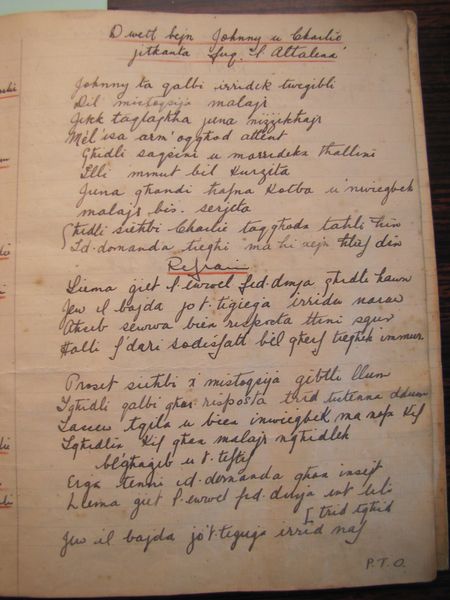 Dwett bejn Johnny u Charlie
jitkanta fuq "L Attalena"
Johnny ta qalbi irridek twegibli
Dil mistoqsija malajr
Jekk taqlaghha juna nizzikhajr
Mel' isa arm' oqghod attent
Ghidli saqsini u marridekx thallini
Illi mmut bil kurzita
Juna ghandi hafna kotba u nwiegbek
malajr bis-serjeta
Ghidli siehbi Charlie taqghodx tahli hin
Id-domanda tieghi ma hi xejn
Refrain
Liema giet l-ewwel fed-dinja ghidli hawn
Jew il bajda jo t-tigiega irridu naraw
Ahseb sewwa biex risposta ttini sgur
Halli f'dari sodisfatt bil gherf tieghek immur.
Proset siehbi x'mistoqsija gibtli llum
Ighidli qalbi ghax risposta trid tistenna
tqila u biex inwiegbek ma nafx kif
kif ghax malajr nghidlek
bl'ghageb u t-
Erga tenni id-domanda ghax insejt
Liema giet l-ewwel fed-dinja int
[trid tghid
Jew il bajda jo't-tigiega irrid naf
P.T.O.